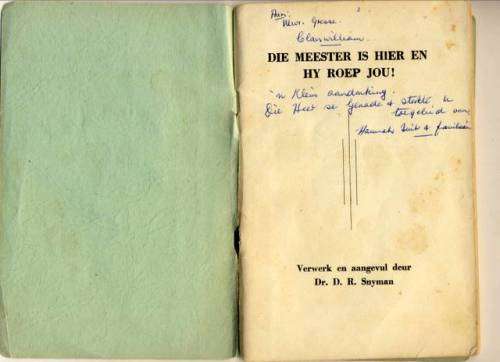 Aan:
Mevr. Gresse.
Clanwilliam.
DIE MEESTER IS HIER EN
HY ROEP JOU!
'n Klein aandenking.
Die Heer se genade & sterkte u
toegebid van
Hannah Smit & familie
Verwerk en aangevul deur
Dr. D. R. Snyman